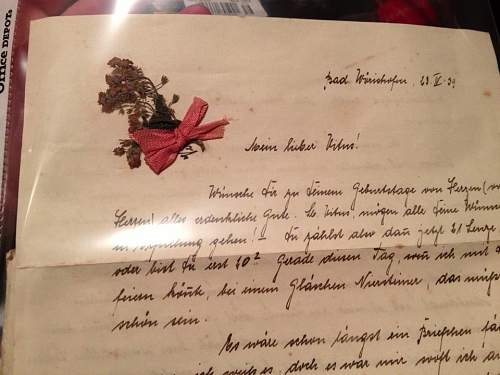 Office DEPOT.
Bad Wörishofen, 23.IV.39
Mein lieber Vitus!
Wünsche Dir zu Deinem Geburtstage von Herzen
Herzen) alles erdenkliche Gute. Lb. Vitus, mögen alle Deine
in Erfüllung gehen! – Du zählst aber dann jetzt 21 Lenze
oder bist Du erst 20? Gerade diesen Tag, wo ich mit
feiern könnte, bei einem Gläschen Niersteiner, das müßte
schön sein.
Es wäre schon längst ein Briefchen
ich weiß es, doch es war mir